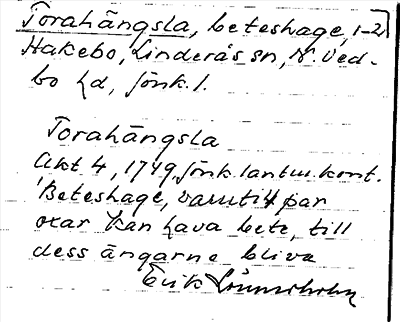 Torahängsla, beteshage, 1-2
Hakebo, Linderås sn, N. Ved-
bo hd, Jönk. l.
Torahängsla
Akt 4, 1749, Jönk. lantm. kont.
"Beteshage, varutil 4 par
oxar kan hava bete, till
dess ängarne bliva
Erik